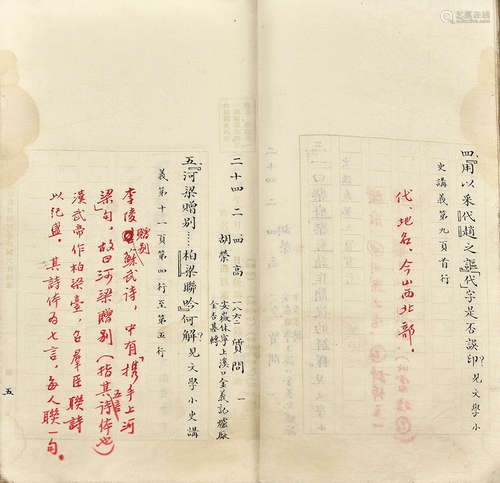 四、『用以釆代趙之謳』『代』字是否誤印?見文學小
史講義第九頁首行
代、地名。今山西北部。
二十四 二 四 高 一八六二 質問 一
胡榮
安徽休寧上溪口金義記
五、『河梁贈别……柏梁聯吟』何解?見文學小史講
義第十一頁第四行至第五行
李陵贈别蘇武詩,中有「携手上河
梁」句,故曰河梁贈别(指其詩体五言也)
漢武帝作柏梁臺,召羣臣聯詩
以紀盛。其詩体爲七言,每人聯一句。
五